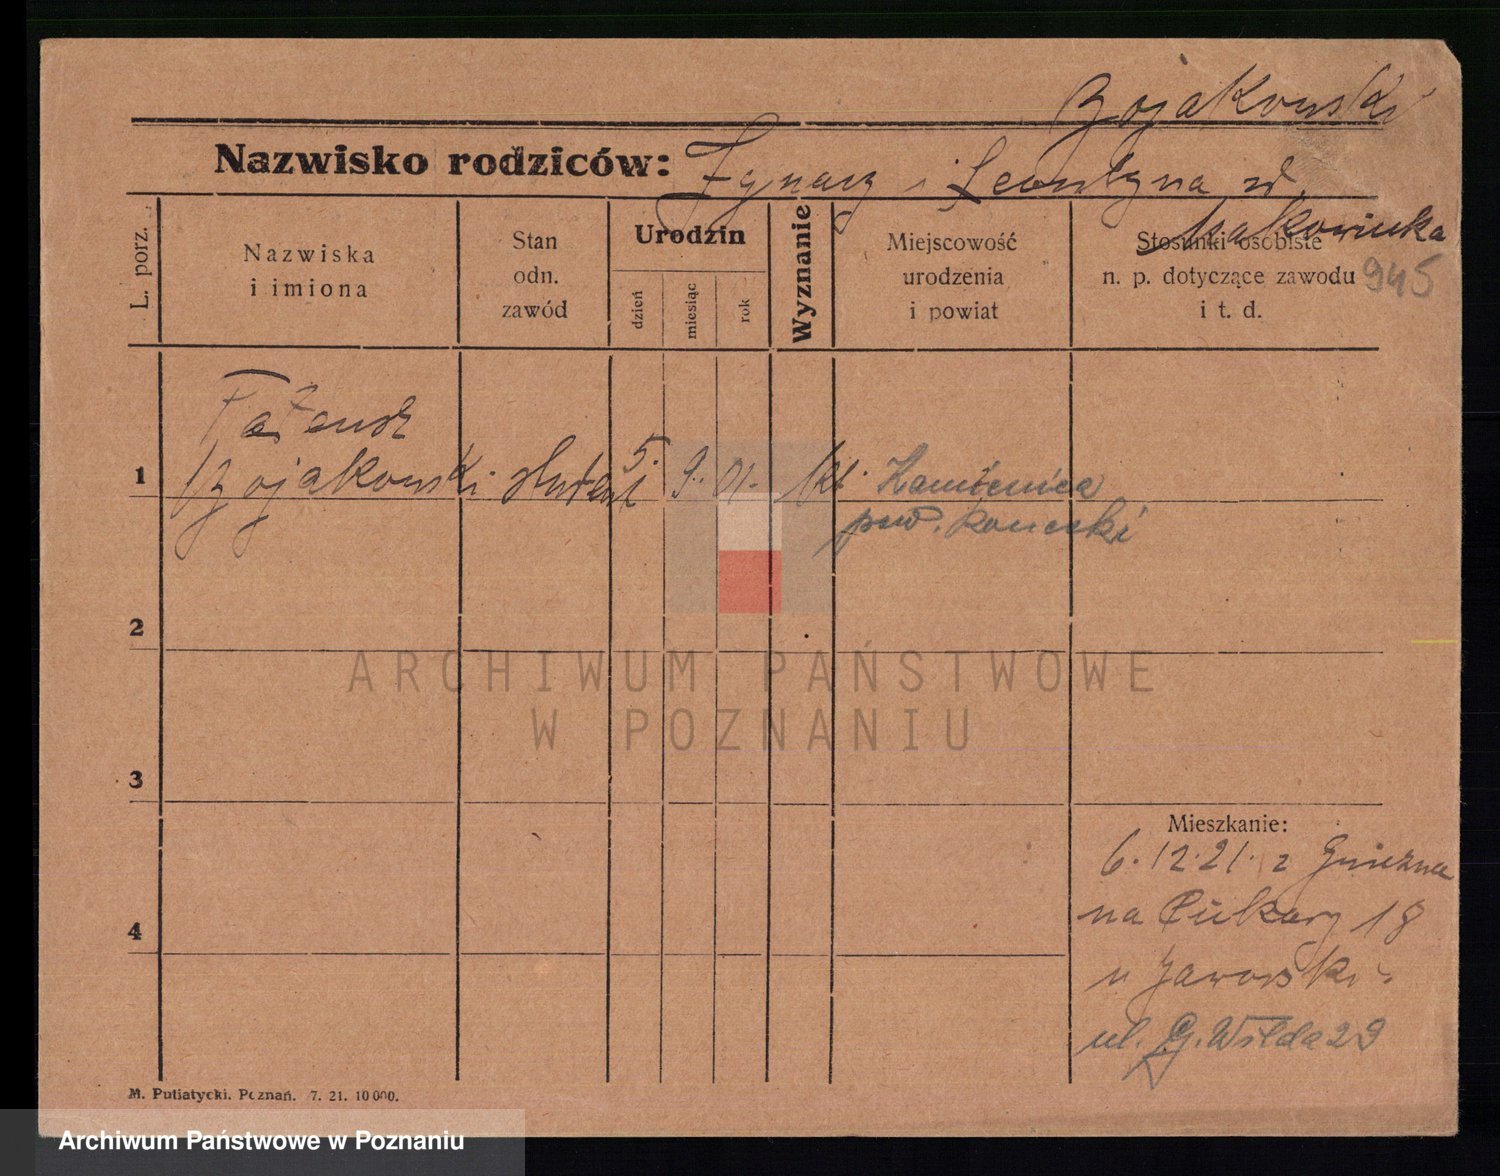 Bojakowski
Nazwisko rodziców: Ignacy i Leontyna zd.
Makowiecka
L. porz.
Nazwiska
i imiona
Stan
odn.
zawód
Urodzin
dzień
miesiąc
rok
Wyznanie
Miejscowość
urodzenia
i powiat
Stosunki osobiste
n. p. dotyczące zawodu
i t. d.
945
1
Bojakowski student 5. 9. 01. kt. Kamienica
pow. konecki
2
3
4
Mieszkanie:
6.12.21. z Gniezna
na 18
u Jaworski
ul. G. Wilda 29
M. Putiatycki. Poznań. 7. 21. 10 000.
ARCHIWUM PAŃSTWOWE
W POZNANIU
Archiwum Państwowe w Poznaniu